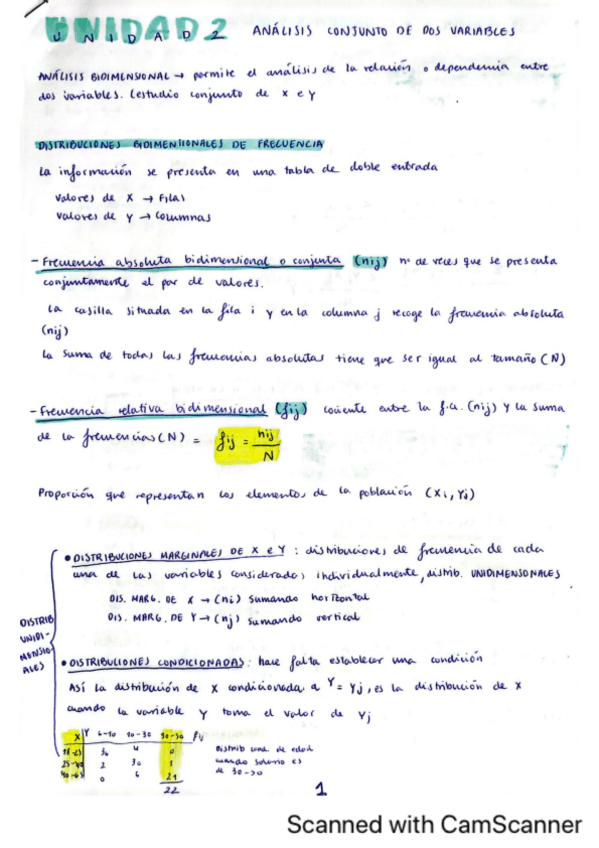 UNIDAD 2 ANÁLISIS CONJUNTO DE DOS VARIABLES
ANÁLISIS BIDIMENSIONAL → permite el análisis de la relación o dependencia entre
dos variables. (estudio conjunto de X e Y
DISTRIBUCIONES BIDIMENSIONALES DE FRECUENCIA
La información se presenta en una tabla de doble entrada
Valores de X → Filas
Valores de Y → Columnas
- Frecuencia absoluta bidimensional o conjunta (nij) nº de veces que se presenta
conjuntamente el par de valores.
La casilla situada en la fila i y en la columna j recoge la frecuencia absoluta
(nij)
La suma de todas las frecuencias absolutas tiene que ser igual al tamaño (N)
- Frecuencia relativa bidimensional (fij) cociente entre la f.a. (nij) y la suma
de la frecuencias (N) = fij = nij
N
Proporción que representan los elementos de la población (Xi, Yj)
• DISTRIBUCIONES MARGINALES DE X e Y : distribuciones de frecuencia de cada
una de las variables consideradas individualmente, distrib. UNIDIMENSIONALES
DIS. MARG. DE X → (ni) sumando horizontal
DIS. MARG. DE Y → (nj) sumando vertical
DISTRIB
UNIDI-
MENSIO-
ALES
• DISTRIBUCIONES CONDICIONADAS: hace falta establecer una condición
Así la distribución de X condicionada a Y = Yj, es la distribución de X
cuando la variable Y toma el valor de Yj
X Y 6-10 10-30 30-50
18-25 4 0
25-40 2 30 1
40-65 0 6 21
22
Distrib cond. de edad
cuando salario es
de 30-50
1
Scanned with CamScanner